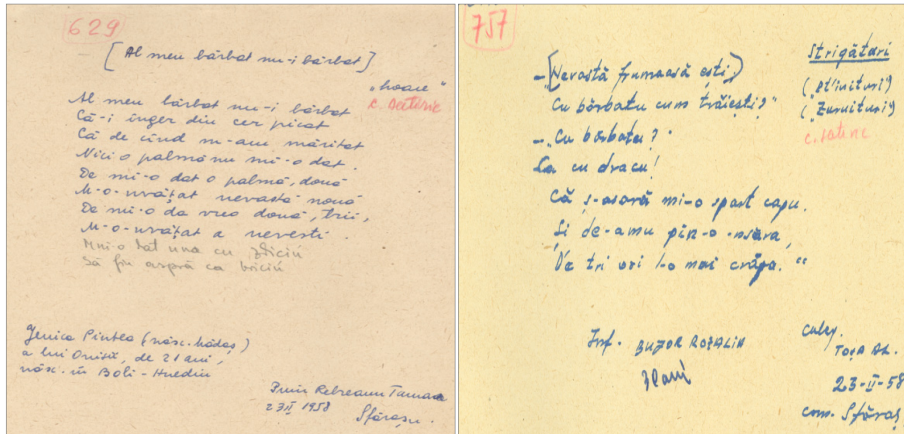 629
[Al meu bărbat nu-i bărbat]
„hoaie"
c. satiric
Al meu bărbat nu-i bărbat
Că-i înger din cer picat
Că de cînd m-am măritat
Nici o palmă nu mi-o dat.
De mi-o dat o palmă, două
M-o-nvățat nevastă nouă
De mi-o da vreo două, trii,
M-o-nvățat a nevesti.
Mni-o dat una cu
Să fiu aspră ca briciu
Jenica Pintea (născ. hădăș)
a lui Onisii, de 21 ani,
născ. în Boli-Huedin
Rebreanu
23 II 1958
Sfărașu.
757
Strigături
(„
(„Zuruituri")
c. satiric
-[„Nevastă frumoasă ești,]
Cu bărbatu cum trăiești?"
-„Cu bărbatu?
Ca cu dracu!
Că ș-asară mi-o spart capu.
Și de-amu pîn-o-nsăra,
De tri ori l-o mai crăpa."
Inf. BUZOR ROZALIA
culeg.
TOȘA AL.
23-II-58
com. Sfăraș